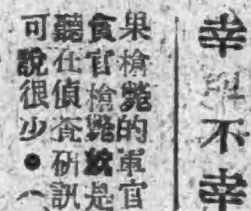 幸不幸
果槍斃的軍官
貪官槍斃是
聽仕偵查研訊
可說很少●（